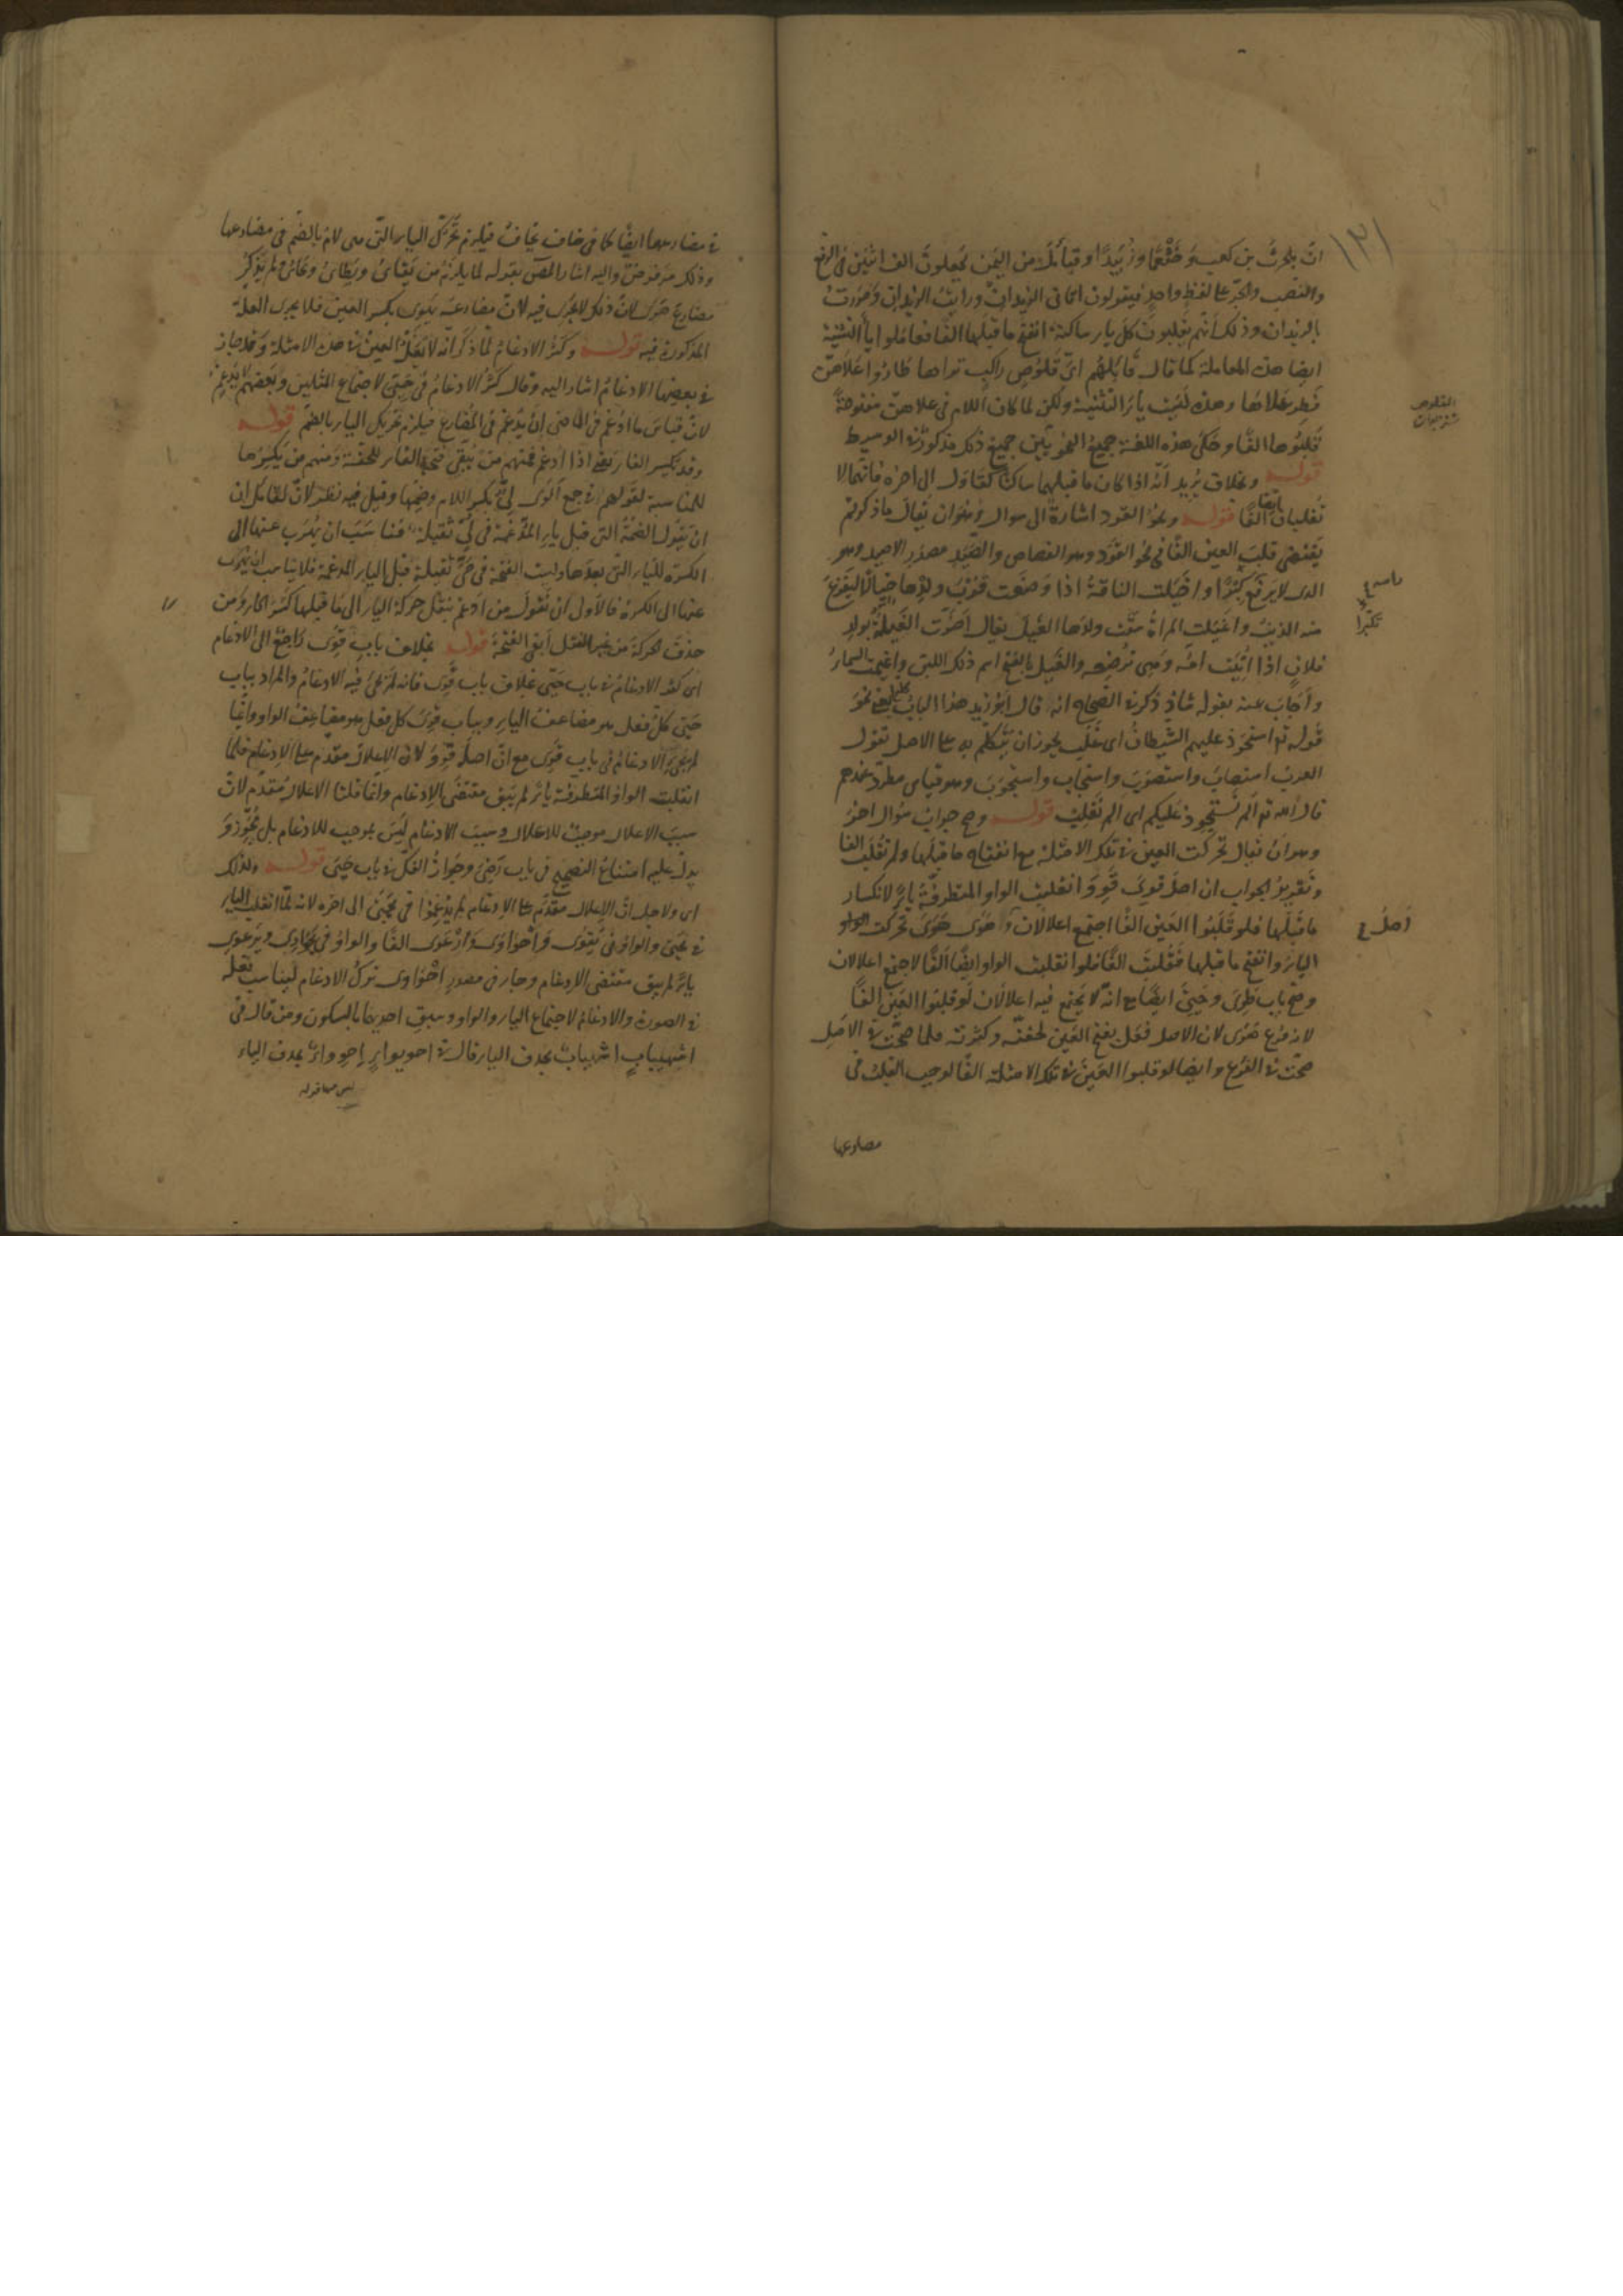 انّ بلحرث بن كعب وخثعمًا وزبيدًا وقبائل من اليمن يجعلون الف اثنين في الرفع
والنصب والجرّ على لفظ واحد فيقولون اتاني الزيدان ورايت الزيدان ومررت
بالزيدان وذلك انّهم يقلبون كل ياء ساكنة انفتح ما قبلها الفا فعاملوا ياء التثنية
ايضا هذه المعاملة كما قال قائلهم ايّ قلوص راكب تراها طاروا علاهنّ
فطر علاها وهذه ليست ياء التثنية ولكن لما كان اللام في علاهنّ مفتوحةً
قلبوها الفًا وحكى هذه اللغة جميع النحويين جميع ذلك مذكور في الوسيط
قوله وبخلاف يريد انّه اذا كان ما قبلهما ساكنًا كقاول الى اخره فانّهما لا
تقلبان الفًا قوله ونحو القود اشارة الى سوال وهو ان يقال ما ذكرتم
يقتضى قلب العين الفًا في نحو القود وهو القصاص والصَّيَد مصدر الاصيد وهو
الذى لا يرفع كبرًا واخيلت الناقة اذا وضعت قرب ولدها خيالًا ليفزع
منه الذئب واغيلت المراة سقت ولدها الغيل يقال اضرّت الغيلة بولد
فلان اذا اتيت امّه وهى ترضعه والغيل بالفتح اسم ذلك اللبن واغيمت السماء
واجاب عنه بقوله شاذ ذكر في الصحاح انه قال ابو زيد هذا الباب كله يعنى نحو
قوله تع استحوذ عليهم الشيطان اى غلب يجوز ان يتكلم به على الاصل تقول
العرب استصاب واستصوب واستجاب واستجوب وهو قياس مطرد عندهم
قال الله تع الم نستحوذ عليكم اى الم نغلب قوله وصح جواب سؤال اخر
وهو ان يقال تحركت العين في تلك الامثلة مع انفتاح ما قبلها ولم تقلب الفا
وتقرير الجواب ان اصل قوى قوو انقلبت الواو المتطرفة ياءً لانكسار
ما قبلها فلو قلبوا العين الفًا اجتمع اعلالان وهوى هوى تحركت الواو
الياء وانفتح ما قبلها فقلبت الفًا فلو انقلبت الواو ايضًا الفًا لاجتمع اعلالان
وصح باب طوى وحيى ايضًا مع انّه لا يجتمع فيه اعلالان لو قلبوا العين الفًا
لانه فرع هوى لان الاصل فعل بفتح العين لخفته وكثرته فلما صحّت في الاصل
صحّت في الفرع وايضا لو قلبوا العين في تلك الامثلة الفًا لوجب القلب في
مضارعها
١٣١
القلوص
اصل
في مضارعها ايضًا كما في خاف يخاف فيلزم تحريك الياء التى هى لام بالضم في مضارعها
وذلك مرفوض واليه اشار المص بقوله لما يلزم من يقاىُ ويطاىُ ويحاىُ ولم يذكر
مضارع هوى لان ذلك لا يجرى فيه لانّ مضارعه يهوى بكسر العين فلا يجرى العلة
المذكورة فيه قوله وكثر الادغام لما ذكر انّه لا تعل العين في هذه الامثلة وقد جاز
في بعضها الادغام اشار اليه وقال كثر الادغام في حيى لاجتماع المثلين وبعضهم لا يدغم
لان قياس ما ادغم في الماضى ان يدغم في المضارع فيلزم تحريك الياء بالضم قوله
وقد يكسر الفاء يعنى اذا ادغم فمنهم من يبقى فتحة الفاء للخفة ومنهم من يكسرها
للمناسبة لقولهم في جمع الوى لىّ بكسر اللام وضمّها وقيل فيه نظر لانّ لقائل ان
ان يقول الضمة التى قبل ياء المدّغمة في لىّ ثقيلة فناسب ان يهرب عنها الى
الكسرة للياء التى بعدها وليست الفتحة في حىّ ثقيلة قبل الياء المدغمة فلا يناسب ان يهرب
عنها الى الكسرة فالاولى ان نقول من ادغم بنقل حركة الياء الى ما قبلها كسر الحاء ومن
حذف الحركة من غير النقل ابقى الفتحة قوله بخلاف باب قوى راجع الى الادغام
اى كثر الادغام في باب حيى بخلاف باب قوى فانه لم يجئ فيه الادغام والمراد بباب
حيى كل فعل هو مضاعف الياء وبباب قوى كل فعل هو مضاعف الواو وانّما
لم يجئ الادغام في باب قوى مع انّ اصله قوو لان الاعلال مقدّم على الادغام فلمّا
انقلبت الواو المتطرفة ياءً لم يبق مقتضى الادغام وانّما قلنا الاعلال مقدّم لانّ
سبب الاعلال موجب للاعلال وسبب الادغام ليس بموجب للادغام بل مجوّز و
يدلّ عليه امتناع التصحيح في باب رضى وجواز الفكّ في باب حيى قوله ولذلك
اى ولاجل انّ الاعلال مقدّم على الادغام لم يدغموا في يحيى الى اخره لانه لمّا انقلبت الياء
في يحيى والواو في يقوى واحواوى وارعوى الفًا والواو في يحواوى ويرعوى
ياءً لم يبق مقتضى الادغام وجاء في مصدر احواوى ترك الادغام ليناسب فعله
في الصورة والادغام لاجتماع الياء والواو وسبق احديهما بالسكون ومن قال في
اشهيباب اشهباب بحذف الياء قال في احويواء احوواء بحذف الياء